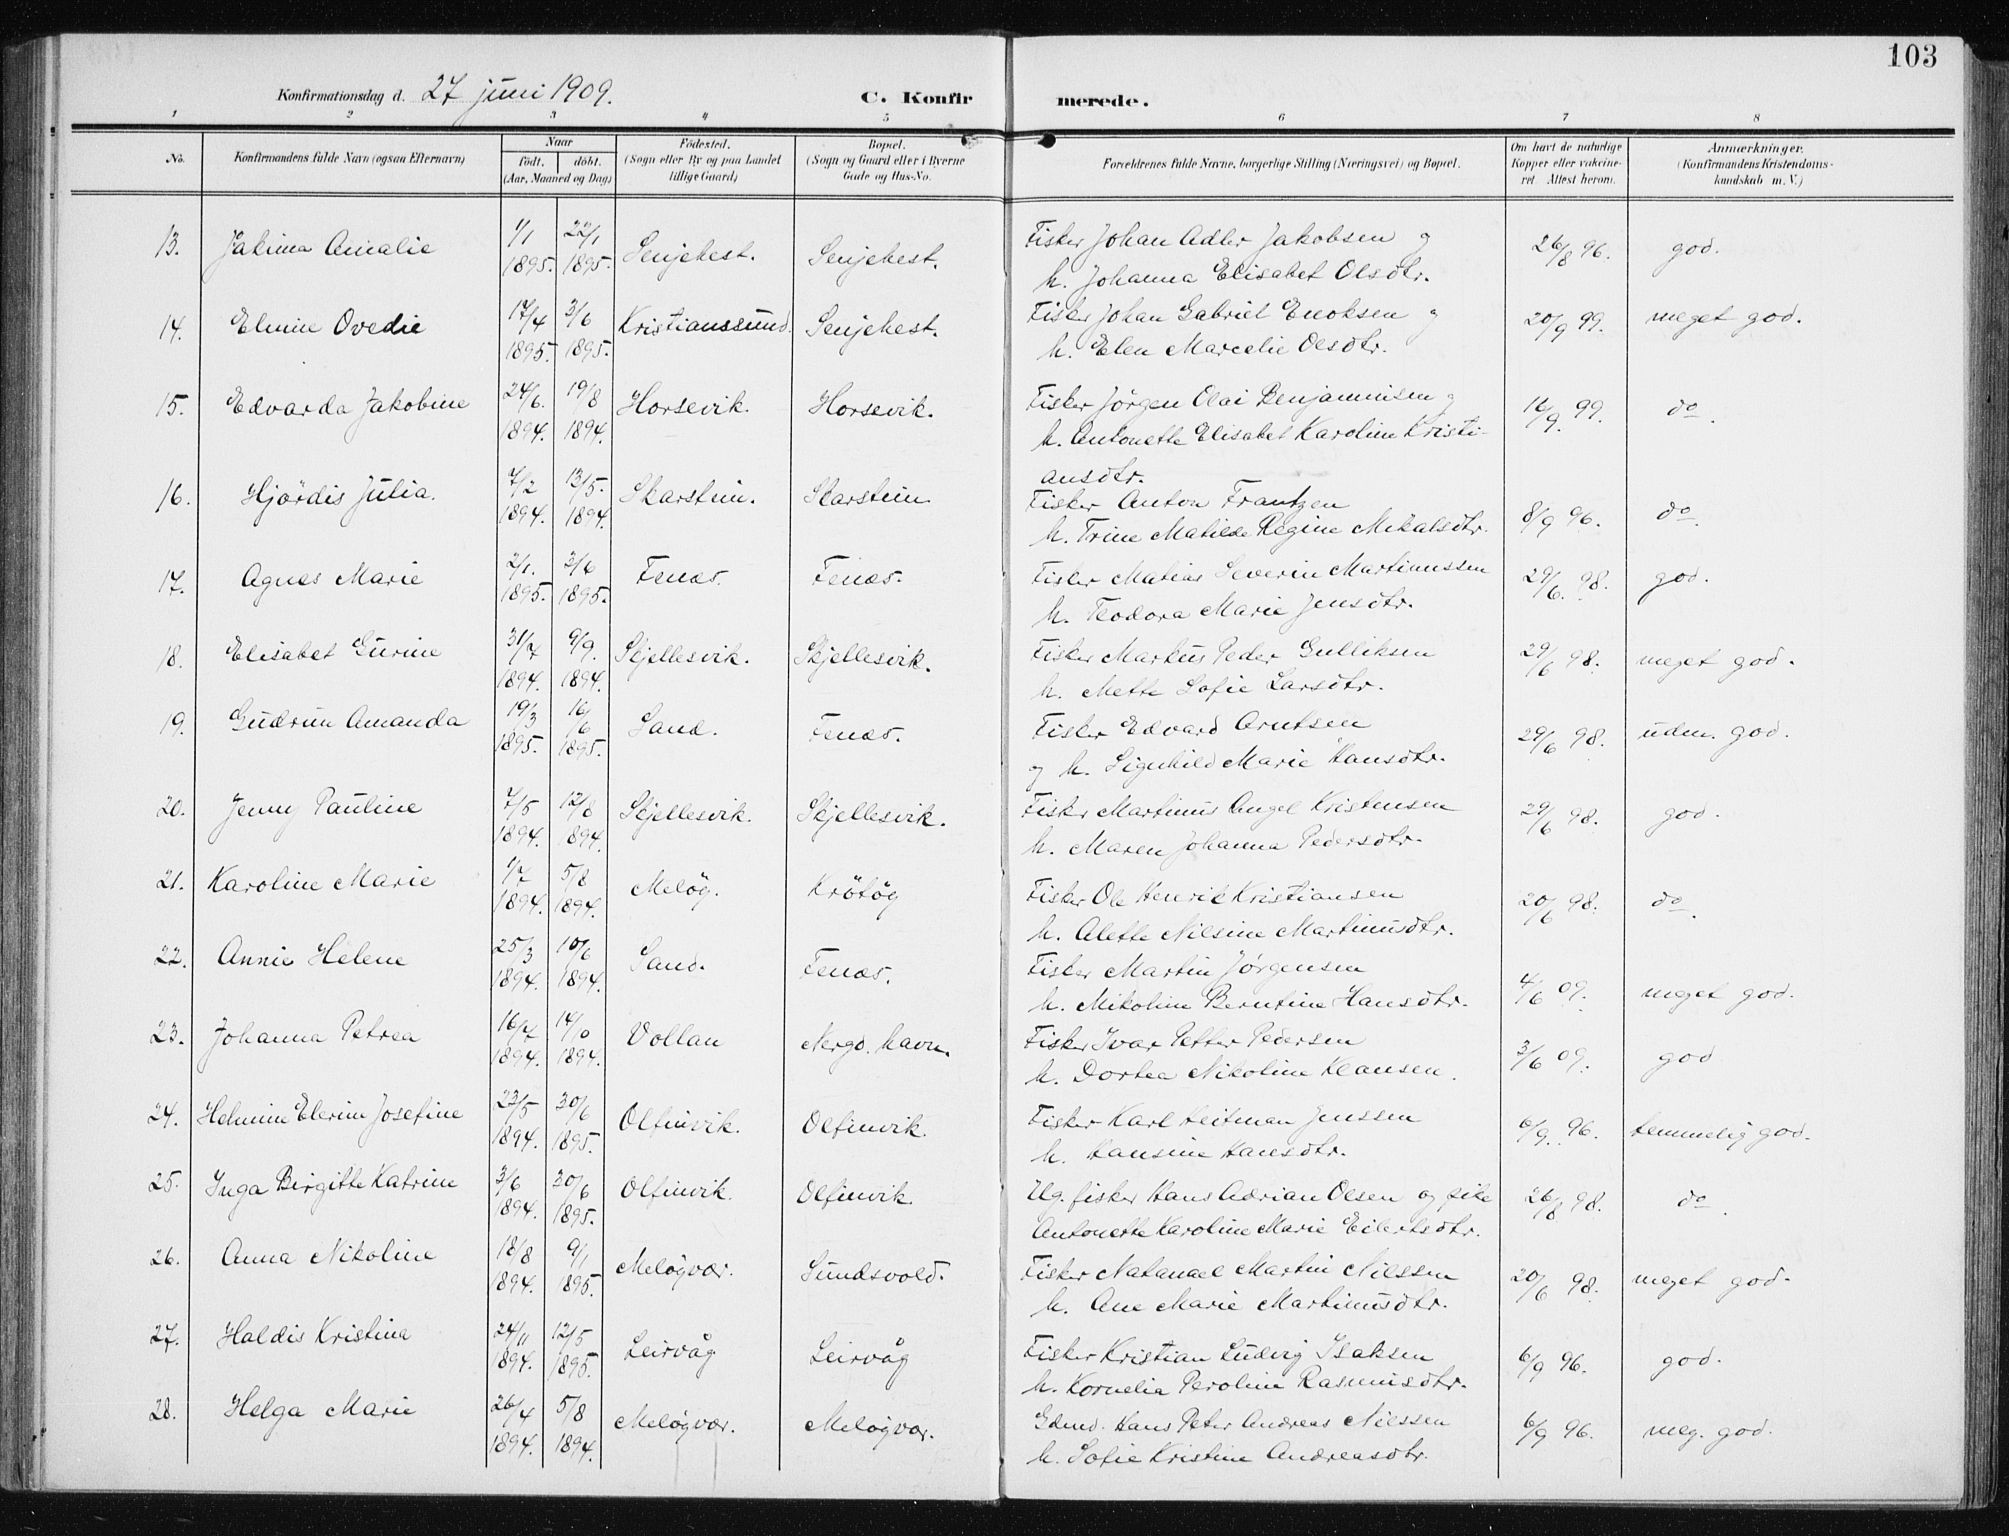 103
Konfirmationsdag d. 27 juni 1909. C. Konfirmerede.
1 2 3 4 5 6 7 8
No. Konfirmandens fulde Navn (ogsaa Efternavn) Naar født. døbt. (Aar, Maaned og Dag) Födested. (Sogn eller By og paa Landet tillige Gaard) Bopæl. (Sogn og Gaard eller i Byerne Gade og Hus-No. Forældrenes fulde Navne, borgerlige Stilling (Næringsvei) og Bopæl. Om havt de naturlige Kopper eller vakcineret. Attest herom. Anmærkninger. (Konfirmandens Kristendomskundskab m. V.)
13. Jakima Amalie 1/1 1895. 22/1 1895. Senjehest. Senjehest. Fisker Johan Adler Jakobsen og 26/8 96. god.
h. Johanna Elisabet Olsdtr.
14. Elmine Ovedie 17/4 1895. 3/6 1895. Kristianssund. Senjehest. Fisker Johan Gabriel Enoksen og 20/9 99. meget god.
h. Elen Marcelie Olsdtr.
15. Edvarda Jakobine 24/6. 1894. 19/8 1894. Horsevik. Horsevik. Fisker Jörgen Olai Benjaminsen og 16/9. 99. do.
h. Antonette Elisabet Karoline Kristi-
ansdtr.
16. Hjördis Julia. 7/2 1894. 13/5. 1894. Skarstein. Skarstein Fisker Anton Frantzen 8/9 96. do.
h. Trine Matilde Regine Mikalsdtr.
17. Agnes Marie 2/1. 1895. 3/6 1895. Fenæs. Fenæs. Fisker Matias Severin Martinussen 29/6. 98. god.
h. Teodora Marie Jensdtr.
18. Elisabet Gurine 31/7 1894. 9/9. 1894. Skjellesvik. Skjellesvik. Fisker Markus Peder Gulliksen 29/6 98. meget god.
h. Mette Sofie Larsdtr.
19. Gudrun Amanda 19/3 1895. 16/6 1895. Sand. Fenæs. Fisker Edvard Arntsen 29/6 98. udm. god.
og h. Signhild Marie Hansdtr.
20. Jenny Pauline 7/5 1894. 12/8 1894. Skjellesvik. Skjellesvik. Fisker Martinus Angel Kristensen 29/6 98. god.
h. Maren Johanna Pedersdtr.
21. Karoline Marie 1/7 1894. 5/8 1894. Melög. Krötög Fisker Ole Henrik Kristiansen 20/6 98. do.
h. Alette Nilsine Martinusdtr.
22. Annie Helene 25/3 1894. 10/6 1894. Sand. Fenæs. Fisker Martin Jörgensen 4/6 09. meget god.
h. Nikoline Berntine Hansdtr.
23. Johanna Petrea 16/7 1894. 14/10 1894. Vollan Nergd. havn. Fisker Ivar Petter Pedersen 3/6 09. god
h. Dortea Nikoline Klausen.
24. Helmine Elerine Josefine 23/5 1894. 30/6 1895. Olfinvik. Olfinvik. Fisker Karl Heitman Jenssen 6/9. 96. temmelig god.
h. Hansine Hansdtr.
25. Inga Birgitte Katrine 3/6 1894. 30/6 1895. Olfinvik. Olfinvik. Ug. fisker Hans Adrian Olsen og pike 26/8 98. do.
Antonette Karoline Marie Eilertsdtr.
26. Anna Nikoline 18/8 1894. 9/1 1895. Melögvær. Sundsvold. Fisker Natanael Martin Nilssen 20/6 98. meget god.
h. Ane Marie Martinusdtr.
27. Haldis Kristina 24/11 1894. 12/5 1895. Leirvåg Leirvåg Fisker Kristian Ludvig Isaksen 6/9 96. god.
h. Kornelia Peroline Rasmusdtr.
28. Helga Marie 26/4 1894. 5/8 1894. Melögvær. Melögvær. Gdmd. Hans Peter Andreas Nilssen 6/9 96. meg. god.
h. Sofie Kristine Andreasdtr.